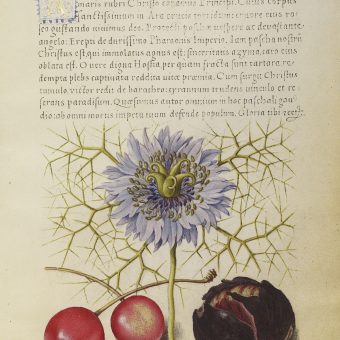 maris rubri Christo canamus Principi. Cuius corpus
sanctissimum in Ara crucis torridum: cruore eius ro-
seo gustando vivimus deo. Protecti paschae vespere ac devastante
angelo: Erepti de durissimo Pharaonis Imperio. Iam pascha nostrum
Christus est, qui immolatus agnus est: sinceritatis azyma, caro eius
oblata est. O vere digna Hostia per quam fracta sunt tartara, re-
dempta plebs captivata reddita vitae praemia. Cum surgit Christus
tumulo, victor redit de barathro: tyrannum trudens vinculo et re-
serans paradisum. Quaesumus autor omnium in hoc paschali gau-
dio: ab omni mortis impetu tuum defende populum. Gloria tibi